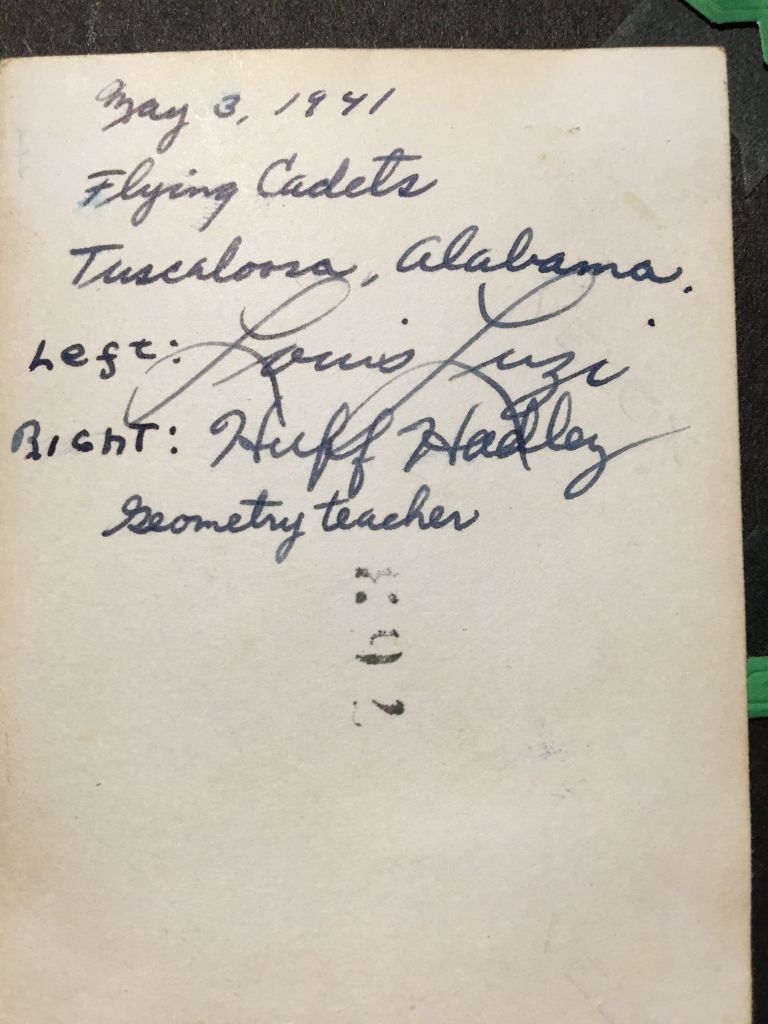 May 3, 1941
Flying Cadets
Tuscaloosa, Alabama.
Left: Louis Luzi
Right: Huff Hadley
Geometry teacher